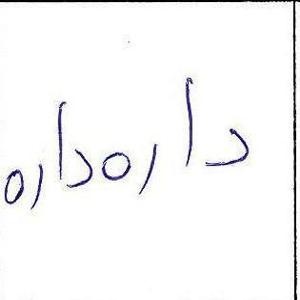 داره داره